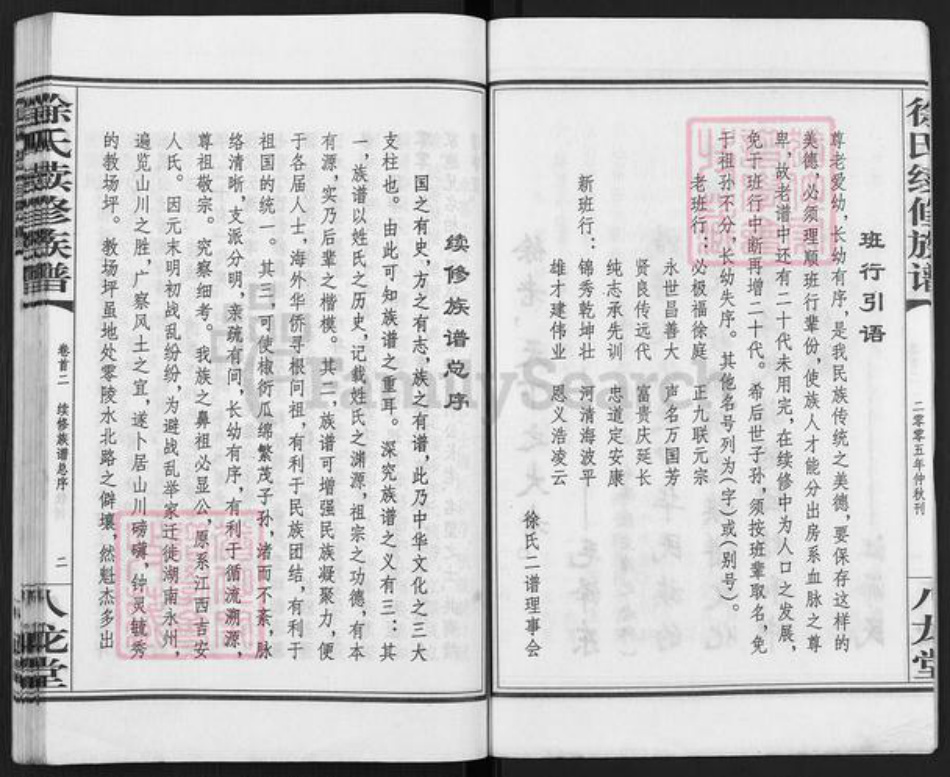 徐氏续修族谱
二零零五年仲秋刊
八龙堂
班行引语
尊老爱幼，长幼有序，是我民族传统之美德，要保存这样的
美德，必须理顺班行辈份，使族人才能分出房系血脉之尊
卑，故老谱中还有二十代未用完，在续修中为人口之发展，
免于班行中断再增二十代。希后世子孙，须按班辈取名，免
于祖孙不分，长幼失序。其他名号列为（字）或（别号）。
老班行：必极福徐庭 正九联元宗
永世昌善大 声名万国芳
贤良传远代 富贵庆延长
纯志承先训 忠道定安康
新班行：锦秀乾坤壮 河清海波平
雄才建伟业 恩义浩凌云
徐氏二谱理事会
续修族谱总序
国之有史，方之有志，族之有谱，此乃中华文化之三大
支柱也。由此可知族谱之重耳。深究族谱之义有三：其
一，族谱以姓氏之历史，记载姓氏之渊源，祖宗之功德，有本
有源，实乃后辈之楷模。其二，族谱可增强民族凝聚力，便
于各届人士，海外华侨寻根问祖，有利于民族团结，有利于
祖国的统一。其三，可使椒衍瓜绵繁茂子孙，渚而不紊，脉
络清晰，支派分明，亲疏有间，长幼有序，有利于循流溯源，
尊祖敬宗。究察细考。我族之鼻祖必显公，原系江西吉安
人氏。因元末明初战乱纷纷，为避战乱举家迁徒湖南永州，
遍览山川之胜，广察风土之宜，遂卜居山川磅礴，钟灵毓秀
的教场坪。教场坪虽地处零陵水北路之僻壤，然魁杰多出
徐氏续修族谱
卷首二 续修族谱总序 二
八龙堂
FamilySearch